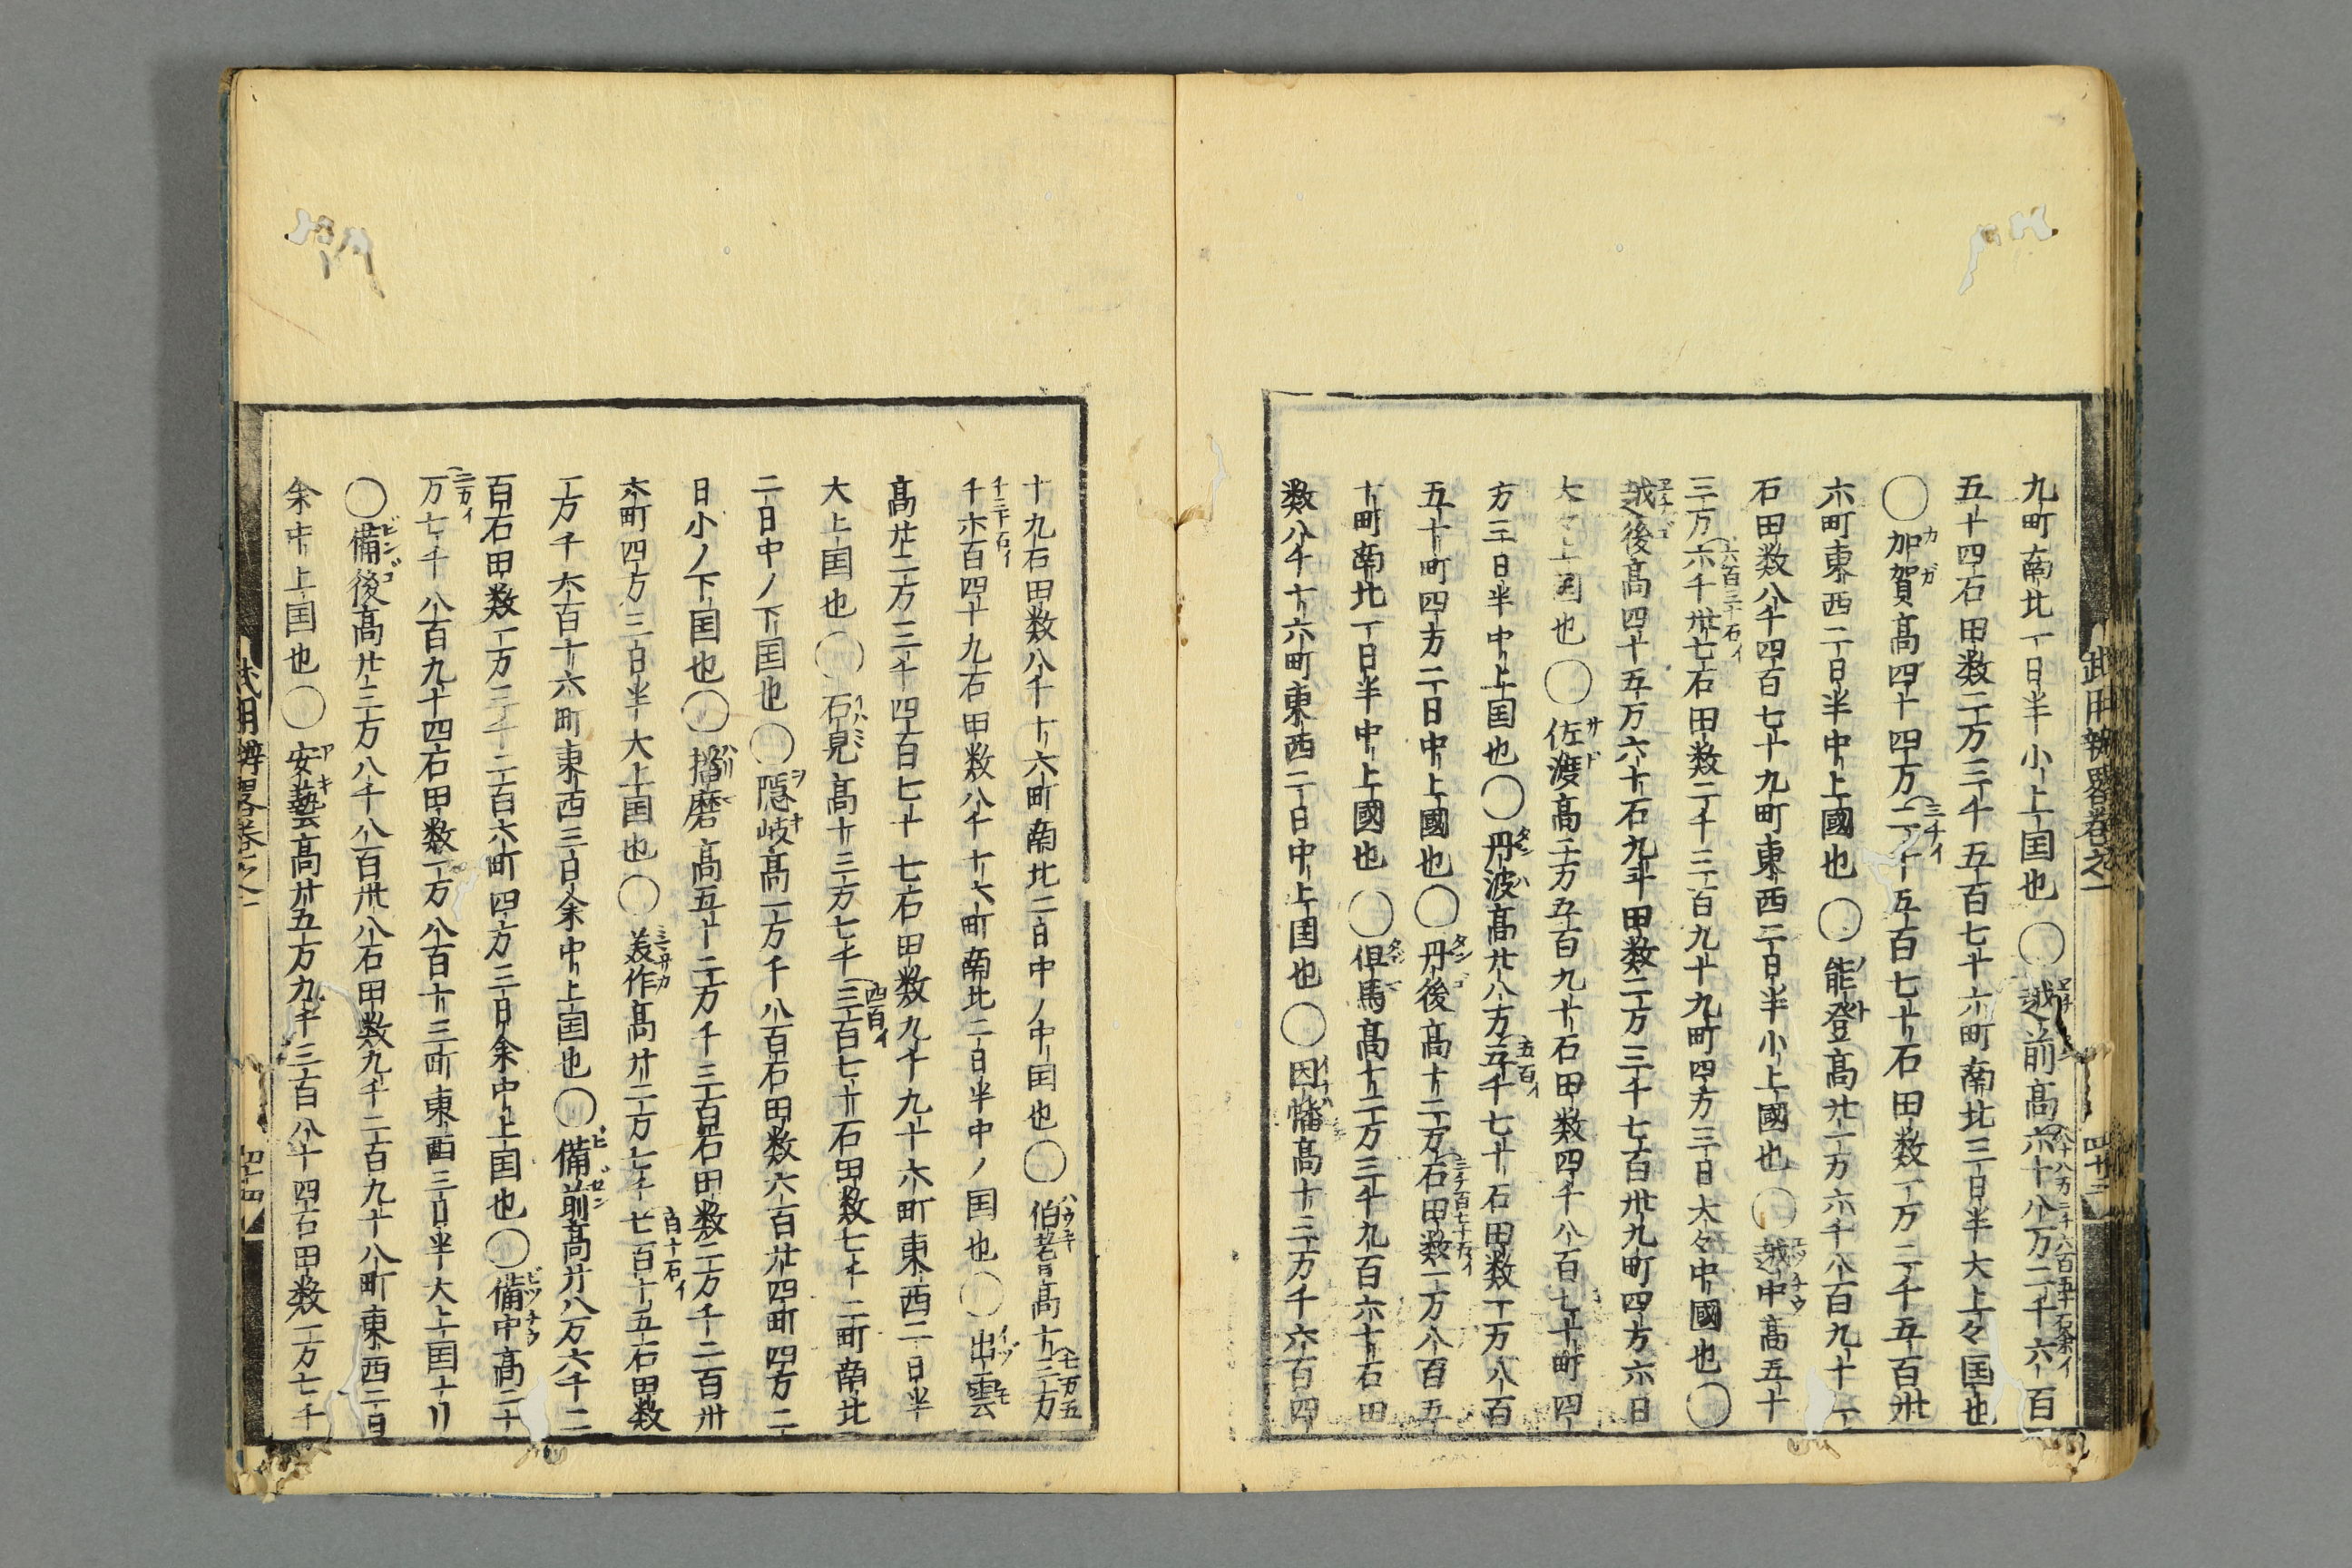 九町南北一日半小上国也〇越前高六十八万二千六百
八十八万二千六百五十石余イ
五十四石田数二万三千五百七十六町南北三日半大上々国也
〇加賀高四十四万二千五百七十石田数一万二千五百卅
カガ
三千イ
六町東西二日半中上國也〇能登高廿一万六千八百九十一
ノト
石田数八千四百七十九町東西二日半小上國也〇越中高五十
エツチウ
三万六千卅七石田数二千三百九十九町四方三日大々中國也〇
六百三十石イ
越後高四十五万六十石九斗田数二万三千七百卅九町四方六日
エチゴ
大々上国也〇佐渡高二万五百九十石田数四千八百七十町四
サド
方三日半中上国也〇丹波高廿八万五千七十石田数一万八百
タンハ
五百イ
五十町四方二日中上國也〇丹後高十二万石田数一万八百五
タンゴ
十町南北一日半中上國也〇但馬高十二万三千九百六十石田
数八千十六町東西二日中上国也〇因幡高十三万千六百四
武用辨畧巻之一
四十三
十九石田数八千十六町南北二日中ノ中国也〇伯耆高十三万
ハウキ
七万五
千六百四十九石田数八千十六町南北二日半中ノ国也〇出雲
千三十石イ
イヅモ
高廿二万三千四百七十七石田数九千九十六町東西二日半
大上国也〇石見高十三万七千三百七十石田数七千二町南北
イハミ
四百イ
二日中ノ下国也〇隠岐高一万千八百石田数六百廿四町四方二
ヲキ
日小ノ下国也〇播磨高五十二万千三百石田数二万千二百卅
ハリマ
六町四方三日半大上国也〇美作高廿二万七千七百十五石田数
ミマサカ
百十石イ
一万千六百十六町東西三日余中上国也〇備前高廿八万六千二
ビゼン
百石田数一万三千二百六町四方三日余中上国也〇備中高二十
ビツチウ
万七千八百九十四石田数一万八百十三町東西三日半大上国ナリ
三万イ
〇備後高廿三万八千八百卅八石田数九千二百九十八町東西二日
ビンゴ
余中上国也〇安藝高廿五万九千三百八十四石田数一万七千
アキ
武用辨畧巻之一
四十四